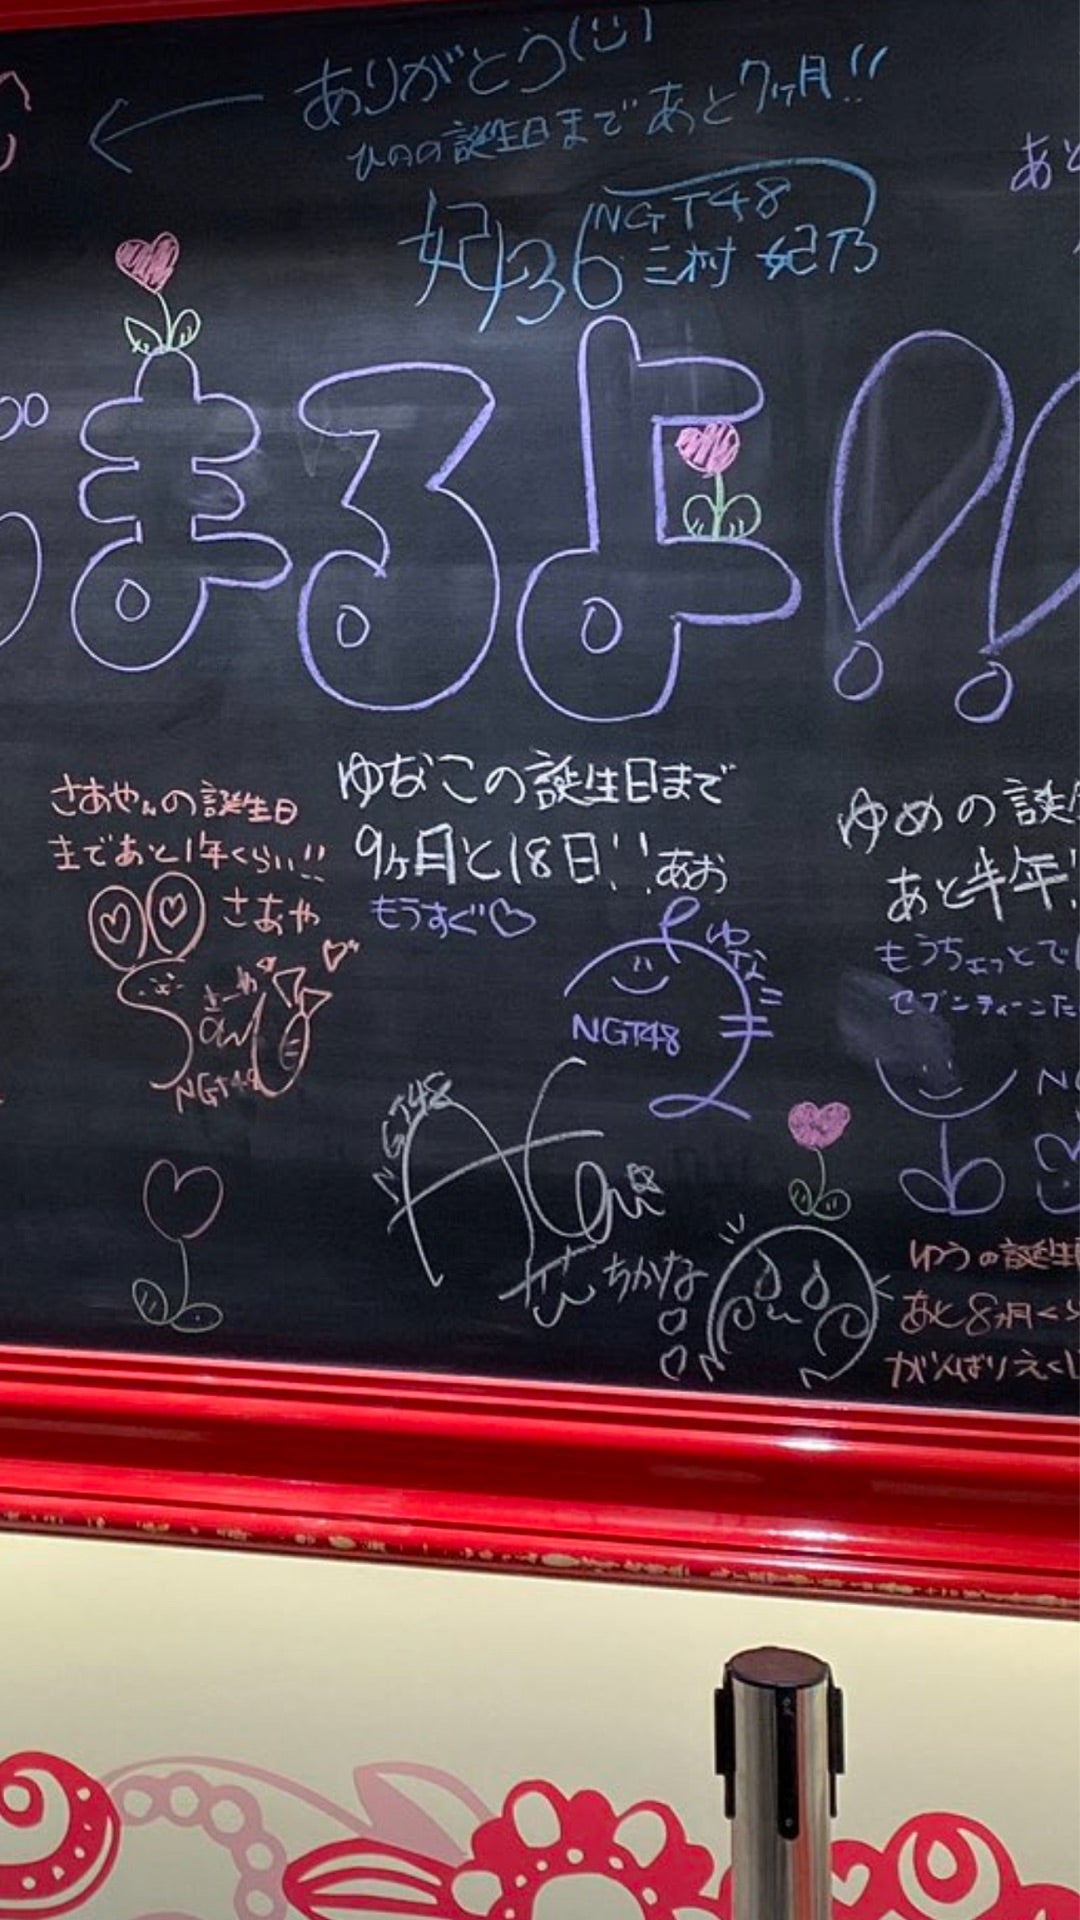 ありがとう(
ひのの誕生日まであと7ヶ月!!
妃436
NGT48
三村 妃乃
あと
まるよ!!
さあやんの誕生日
まであと1年くらい!!
さあや
NGT48
ゆなこの誕生日まで
9ヶ月と18日!!あお
もうすぐ♡
ゆな
NGT48
NGT48
ちかな
ゆめの誕
あと半年!
もうちょっとで
セブンティーンだ
ゆうの誕生
あと8ヶ月く
がんばりえ